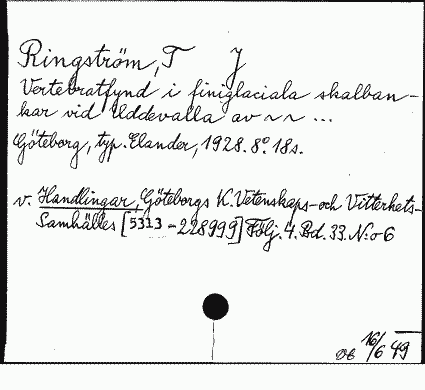 Ringström, T J
Vertebratfynd i finiglaciala skalban-
kar vid Uddevalla av ~ ~ ...
Göteborg, typ. Elander, 1928. 8:o 18 s.
v. Handlingar, Göteborgs K. Vetenskaps- och Vitterhets-
Samhälles [5313-228999] Följ. 4. Bd. 33. N:o 6
16/6 49